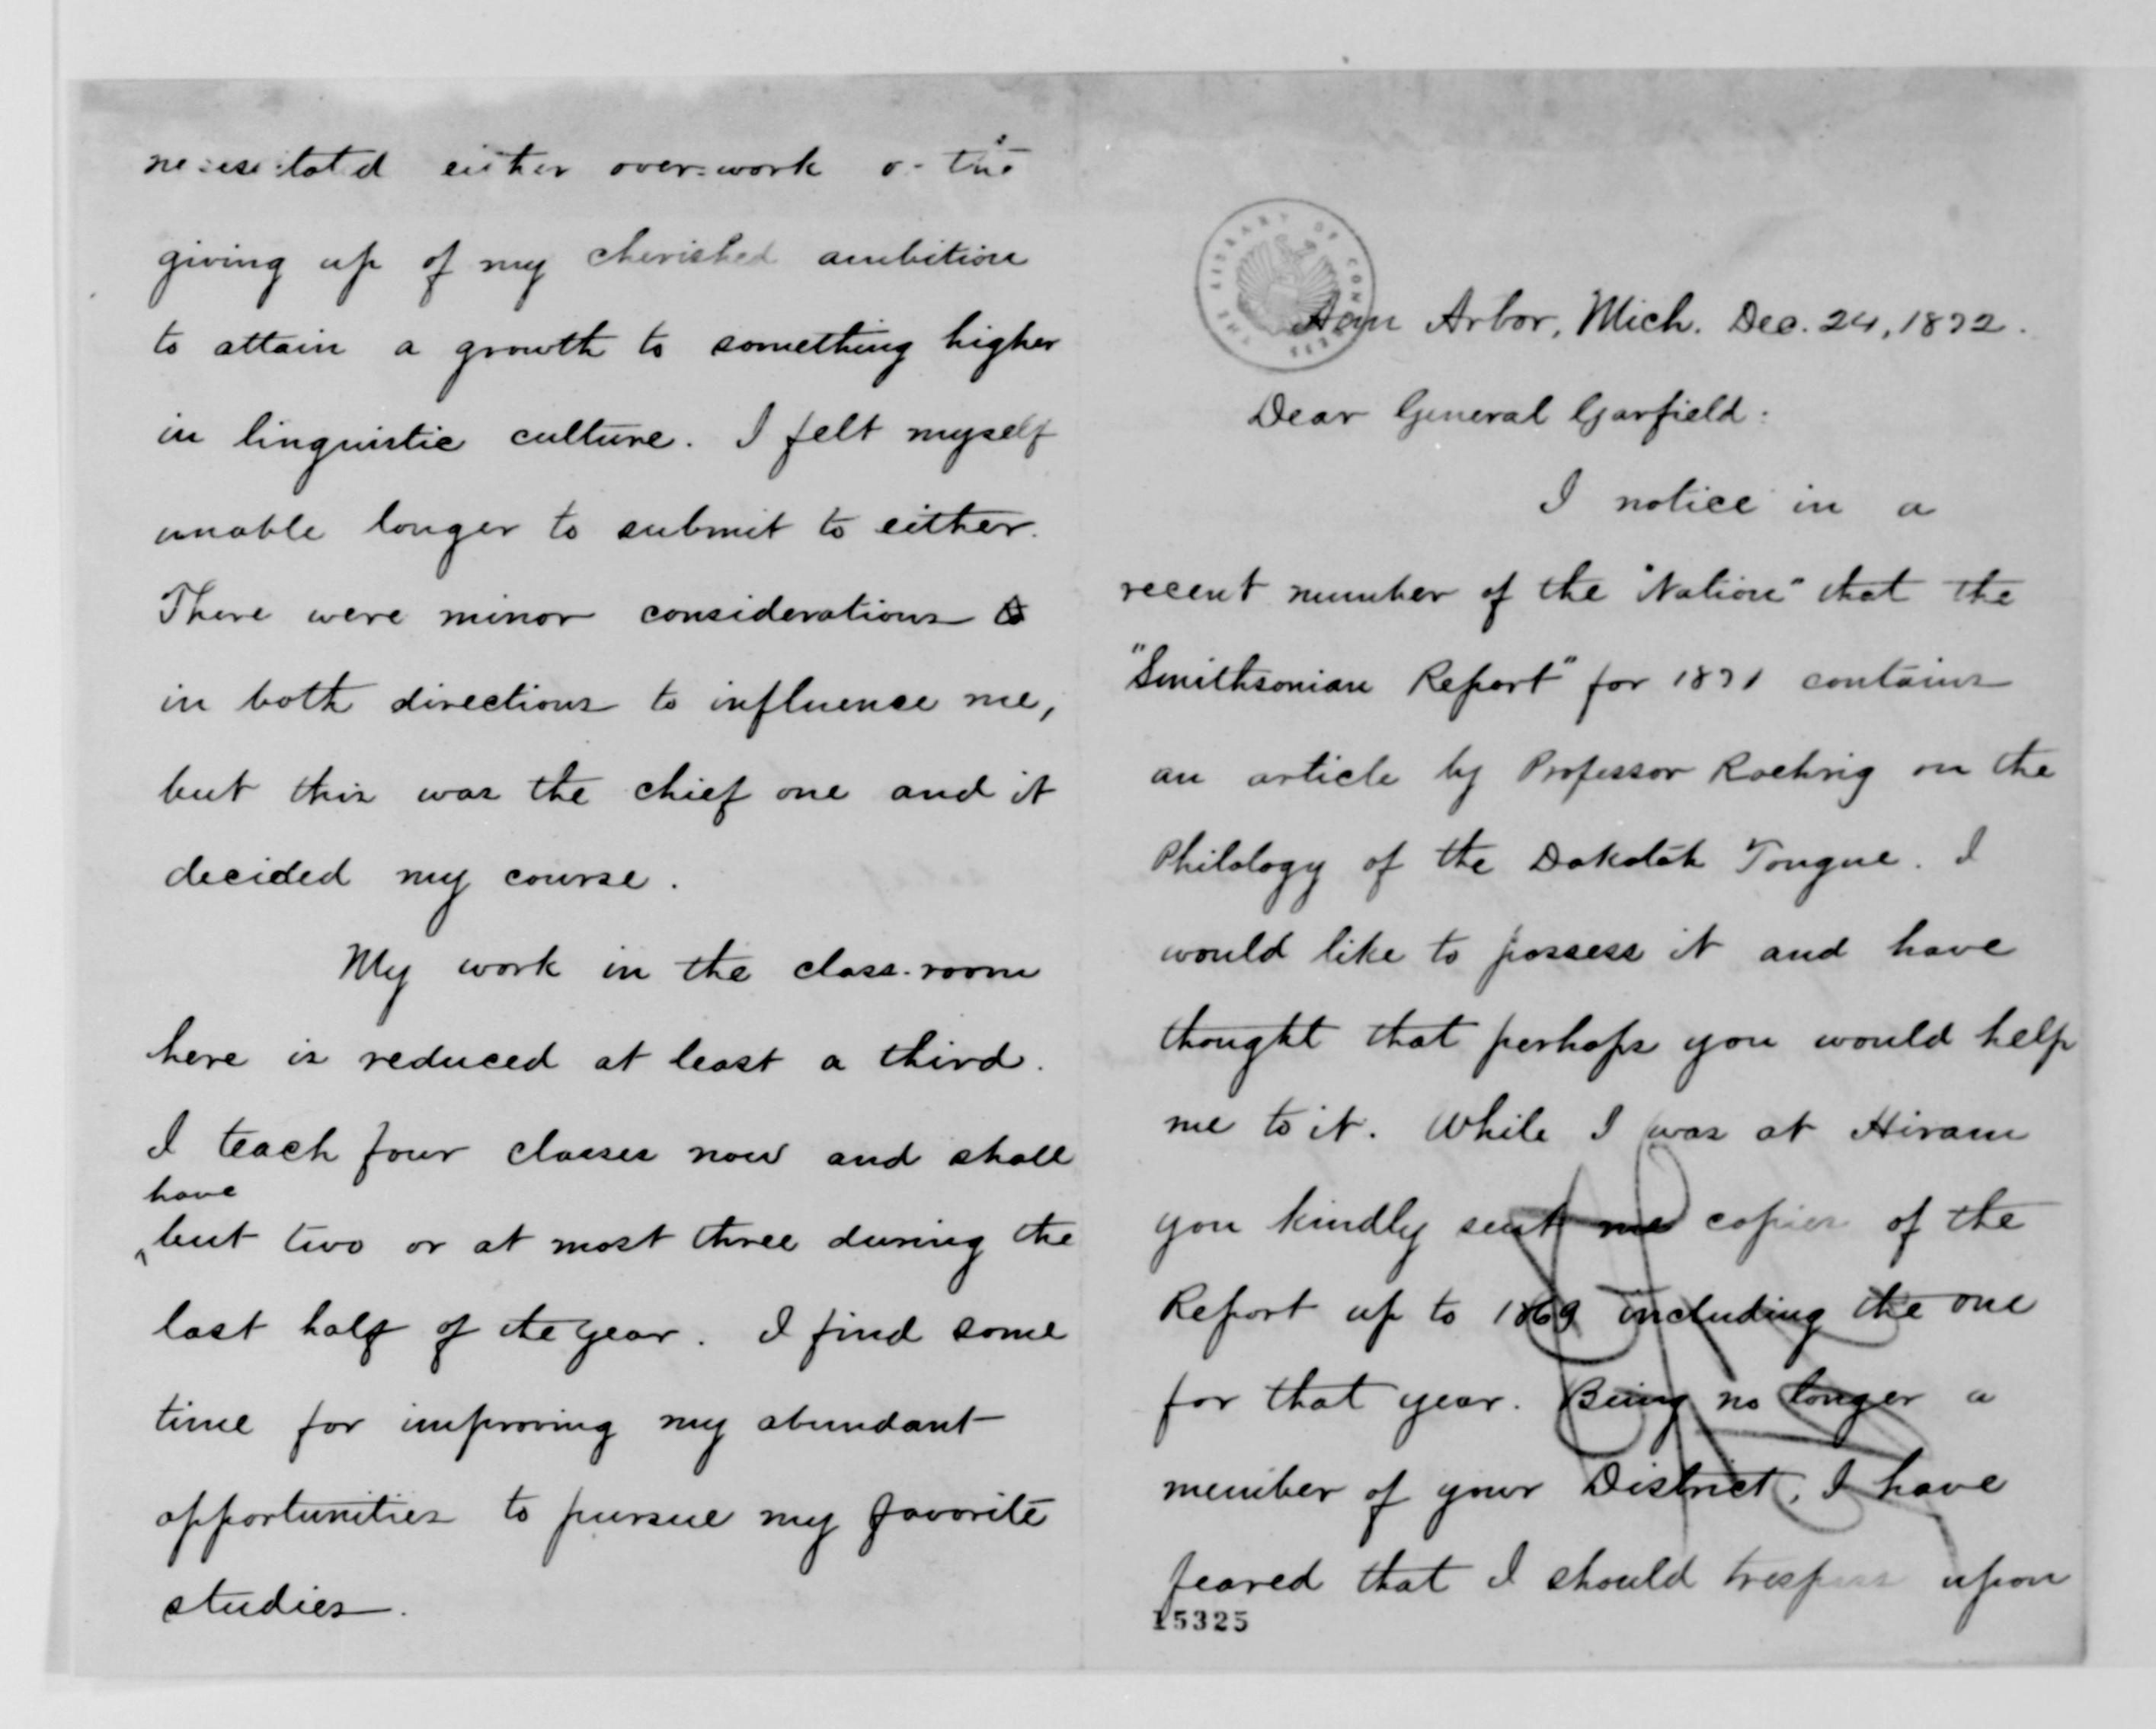 necessitated either over-work or the
giving up of my cherished ambition
to attain a growth to something higher
in linguistic culture. I felt myself
unable longer to submit to either.
There were minor considerations
in both directions to influence me,
but this was the chief one and it
decided my course.
My work in the class-room
here is reduced at least a third.
I teach four classes now and shall
have
but two or at most three during the
last half of the year. I find some
time for improving my abundant
opportunities to pursue my favorite
studies.
THE LIBRARY OF CONGRESS
Ann Arbor, Mich. Dec. 24, 1872.
Dear General Garfield:
I notice in a
recent number of the "Nation" that the
"Smithsonian Report" for 1871 contains
an article by Professor Roehrig on the
Philology of the Dakotah Tongue. I
would like to possess it and have
thought that perhaps you would help
me to it. While I was at Hiram
you kindly sent me copies of the
Report up to 1869 including the one
for that year. Being no longer a
member of your District, I have
feared that I should trespass upon
15325